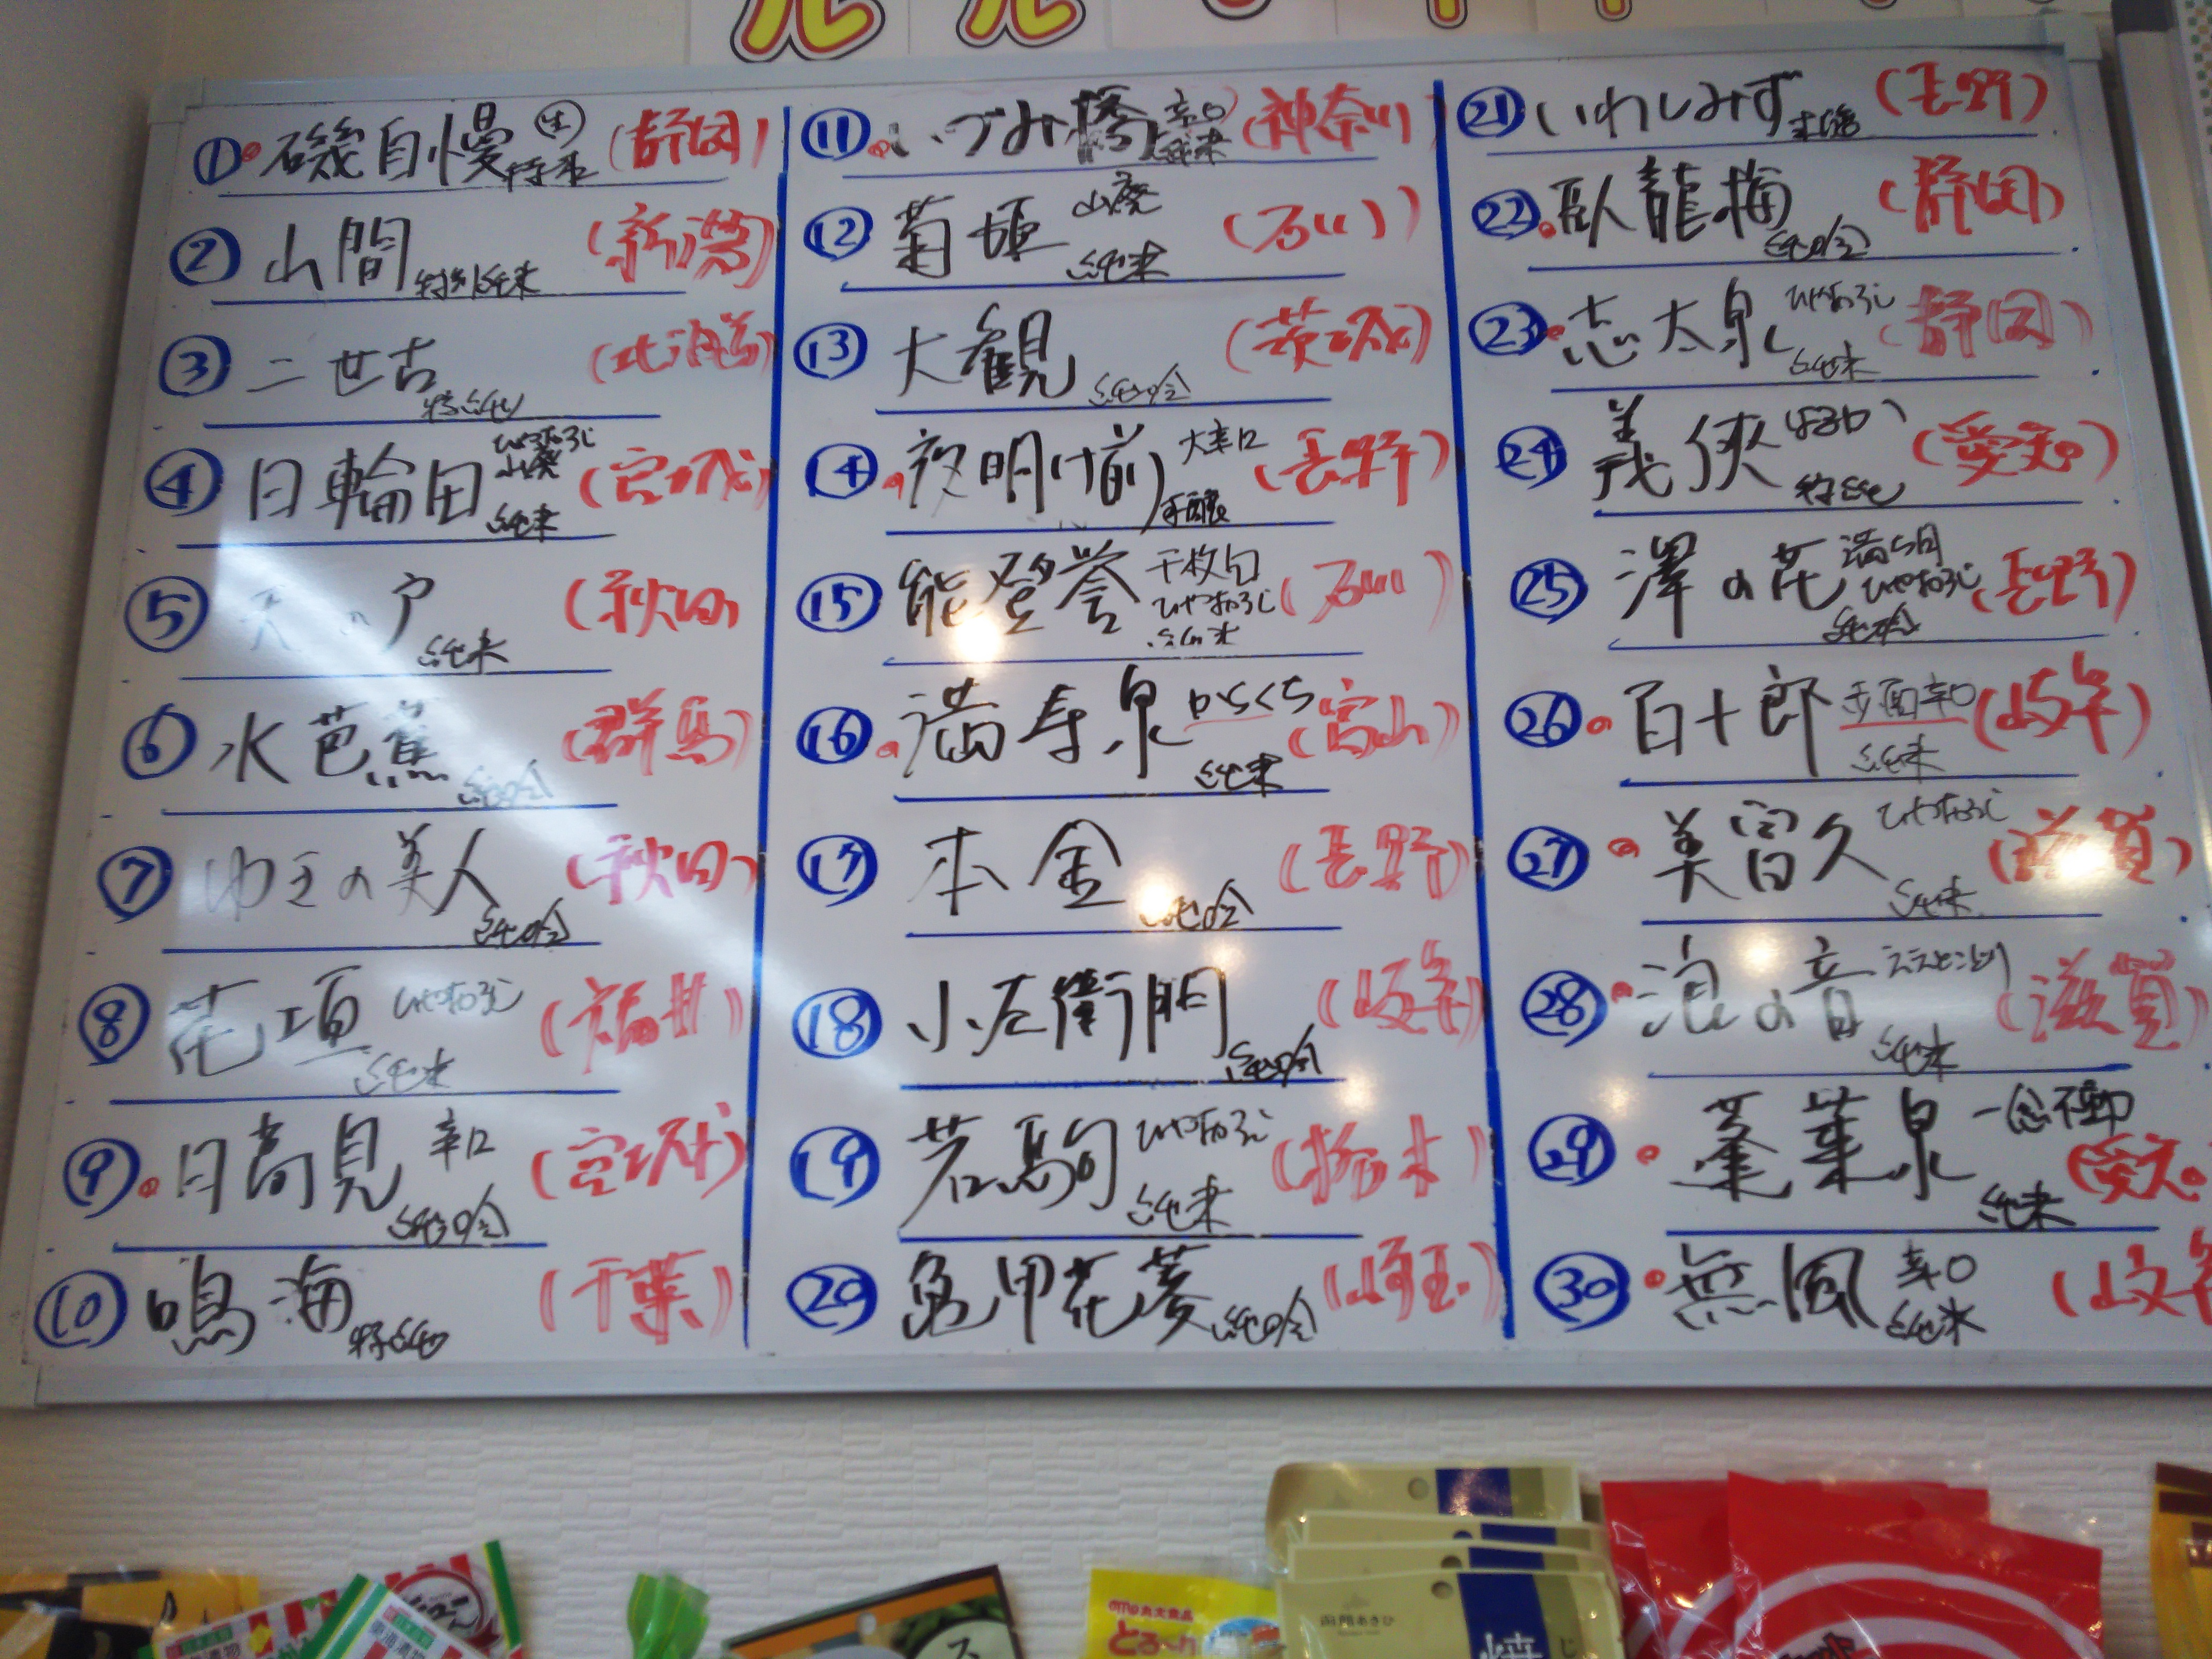 ① 磯自慢 生 特本 (静岡)
② 山間 特別純米 (新潟)
③ 二世古 特純 (北海道)
④ 日輪田 ひやおろし 山廃 純米 (宮城)
⑤ 天の戸 純米 (秋田)
⑥ 水芭蕉 純吟 (群馬)
⑦ ゆきの美人 純吟 (秋田)
⑧ 花垣 ひやおろし 純米 (福井)
⑨ 日高見 辛口 純吟 (宮城)
⑩ 鳴海 特純 (千葉)
⑪ いづみ橋 辛口 純米 (神奈川)
⑫ 菊姫 山廃 純米 (石川)
⑬ 大観 純吟 (茨城)
⑭ 夜明け前 大辛口 本醸 (長野)
⑮ 能登誉 千枚田 ひやおろし 純米 (石川)
⑯ 満寿泉 からくち 純米 (富山)
⑰ 本金 純吟 (長野)
⑱ 小左衛門 純吟 (岐阜)
⑲ 若駒 ひやおろし 純米 (栃木)
⑳ 亀甲花菱 純吟 (埼玉)
㉑ いわしみず (長野)
㉒ 臥龍梅 純吟 (静岡)
㉓ 志太泉 ひやおろし 純米 (静岡)
㉔ 義侠 特純 (愛知)
㉕ 澤の花 ひやおろし 純吟 (長野)
㉖ 百十郎 赤面 辛口 純米 (岐阜)
㉗ 美冨久 ひやおろし 純米 (滋賀)
㉘ 浪の音 ええとこどり 純米 (滋賀)
㉙ 蓬莱泉 一念不動 純米 (愛知
㉚ 無風 辛口 純米 (岐阜
とろ〜り
函館あさひ